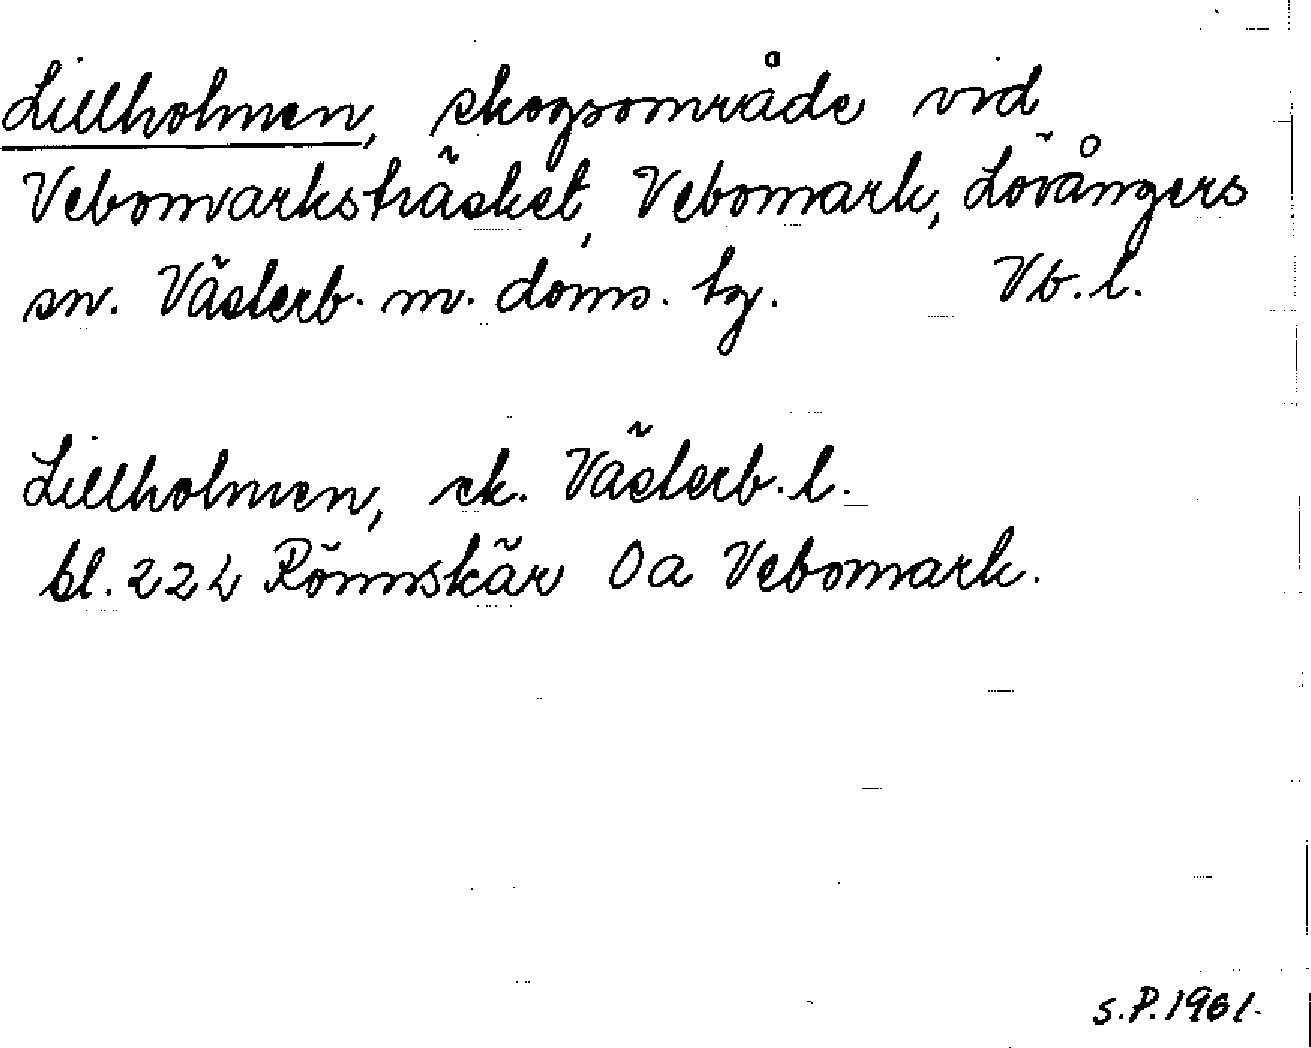 Lillholmen, skogsområde vid
Vebomarksträsket, Vebomark, Lövångers
sn. Västerb. m. doms. hg. Vb. l.
Lillholmen, ek. Västerb. l.
bl. 222 Rönnskär 0a Vebomark.
S.P. 1961.